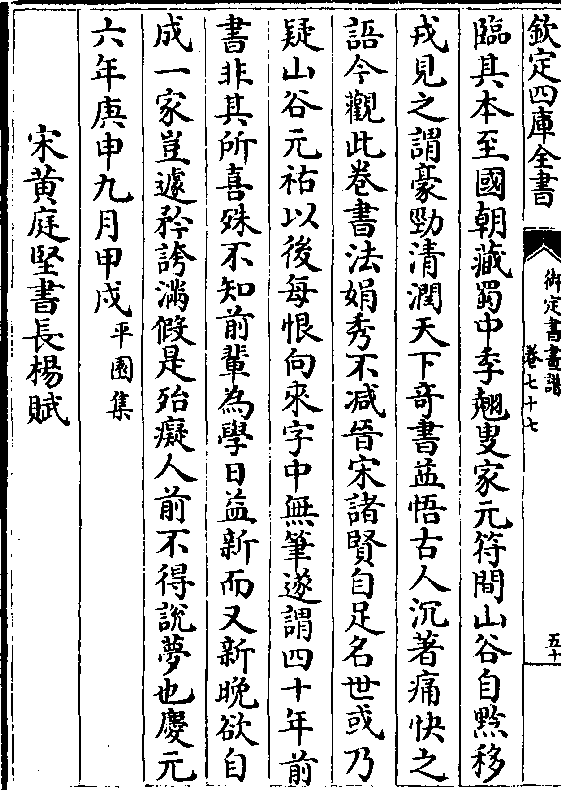 欽定四庫全書
御定書畫譜
卷七十七
五十
臨其本至國朝藏蜀中李翹叟家元符間山谷自黔移
戎見之謂豪勁清潤天下奇書葢悟古人沉著痛快之
語今觀此卷書法娟秀不减晉宋諸賢自足名世或乃
疑山谷元祐以後每恨向來字中無筆遂謂四十年前
書非其所喜殊不知前輩為學日益新而又新晚欲自
成一家豈遽矜誇滿假是殆癡人前不得說夢也慶元
六年庚申九月甲戌 平園集
宋黃庭堅書長楊賦